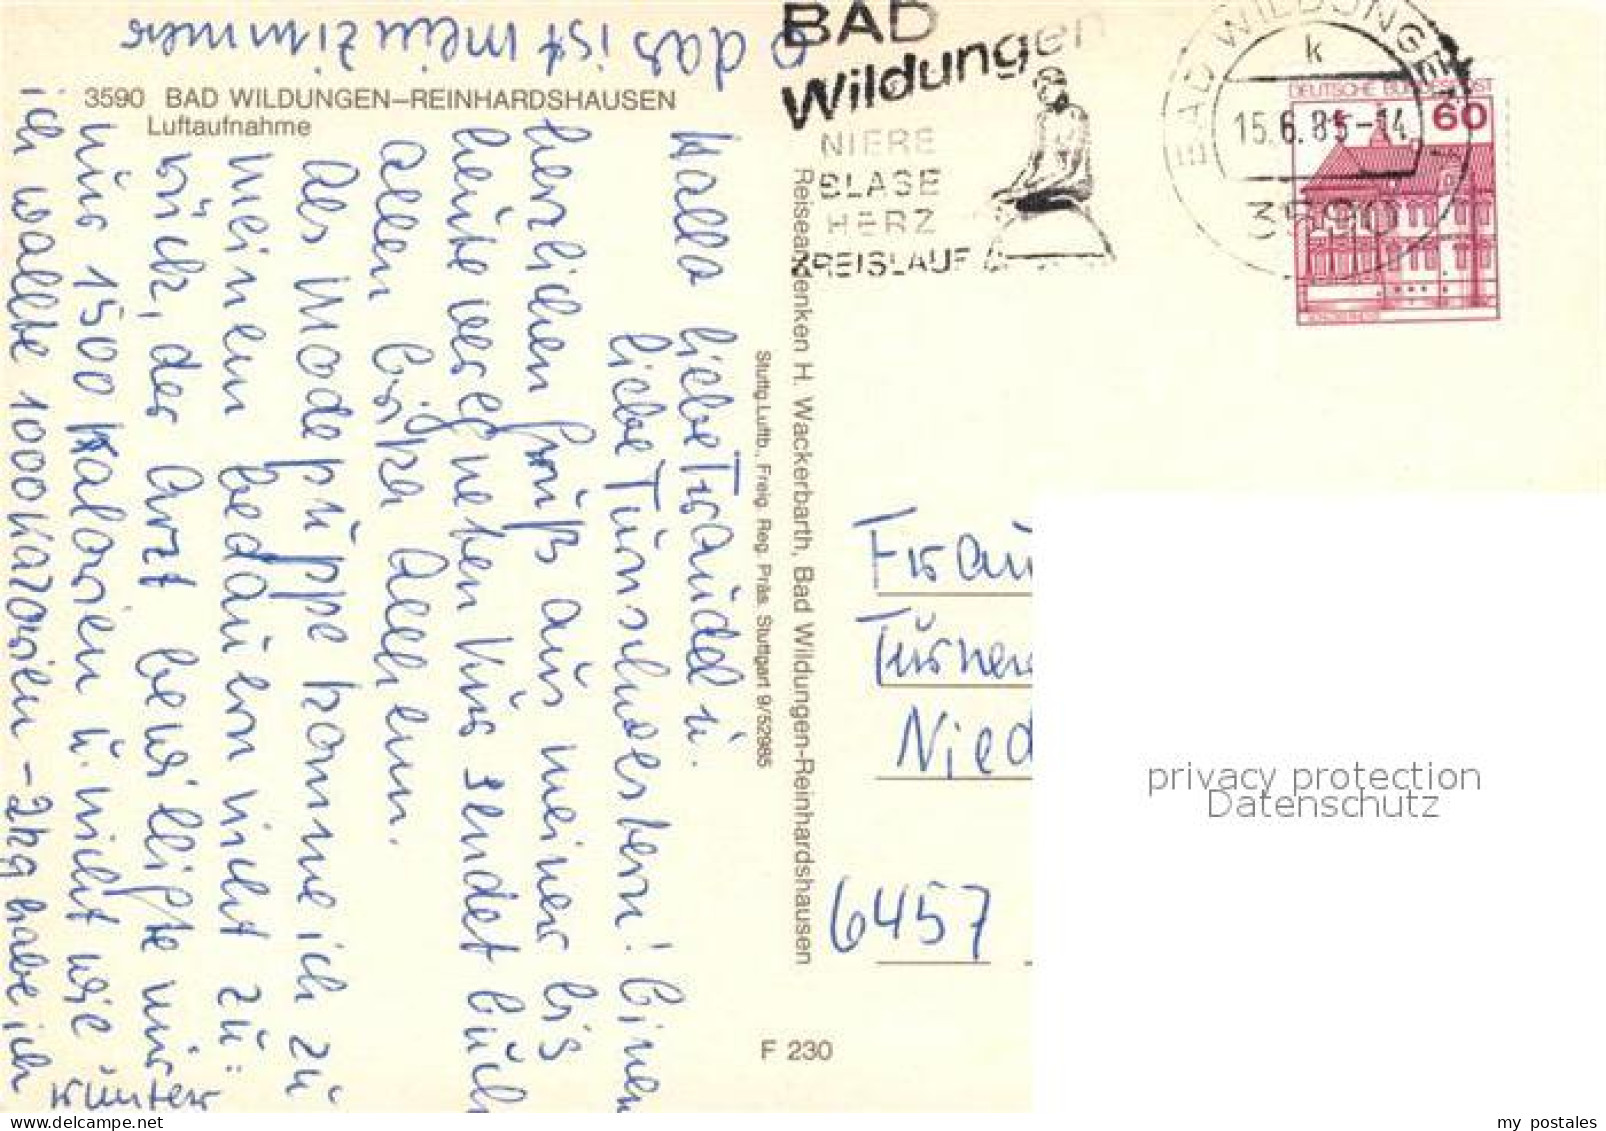 o das ist mein Zimmer
3590 BAD WILDUNGEN–REINHARDSHAUSEN
Luftaufnahme
Hallo liebe Traudel u.
liebe Turnschwestern! Einen
herzlichen Gruß aus meiner bis
heute verregneten Kur sendet Euch
allen
Als Modepuppe komme ich zu
meinem bedauern nicht zu=
rück, der Arzt bewilligte mir
nur 1500 Kalorien u. nicht wie
ich wollte 1000 Kalorien - 2kg habe ich
runter
Stuttg. Luftb., Freig. Reg. Präs. Stuttgart 9/52985
Reiseandenken H. Wackerbarth, Bad Wildungen-Reinhardshausen
F 230
BAD
Wildungen
NIERE
BLASE
HERZ
KREISLAUF
BAD WILDUNGEN 1
k
15.6.85-14
3590
DEUTSCHE BUNDESPOST
60
Frau
Turner
Nied
6457
privacy protection
Datenschutz
my postales